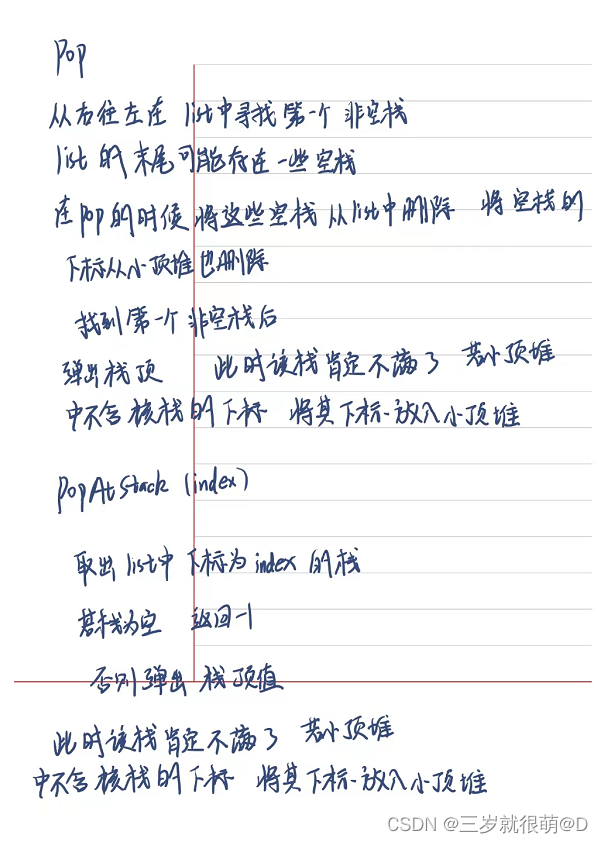 Pop
从右往左在 list中寻找第一个 非空栈
list 的末尾可能存在一些空栈
在pop的时候 将这些空栈 从list中删除 将空栈的
下标从小顶堆也删除
找到第一个 非空栈后
弹出栈顶 此时该栈肯定不满了 若小顶堆
中不含该栈的下标 将其下标放入小顶堆
PopAtStack (index)
取出 list中 下标为 index 的栈
若栈为空 返回-1
否则 弹出 栈顶值
此时该栈肯定不满了 若小顶堆
中不含该栈的下标 将其下标放入小顶堆
CSDN @三岁就很萌@D